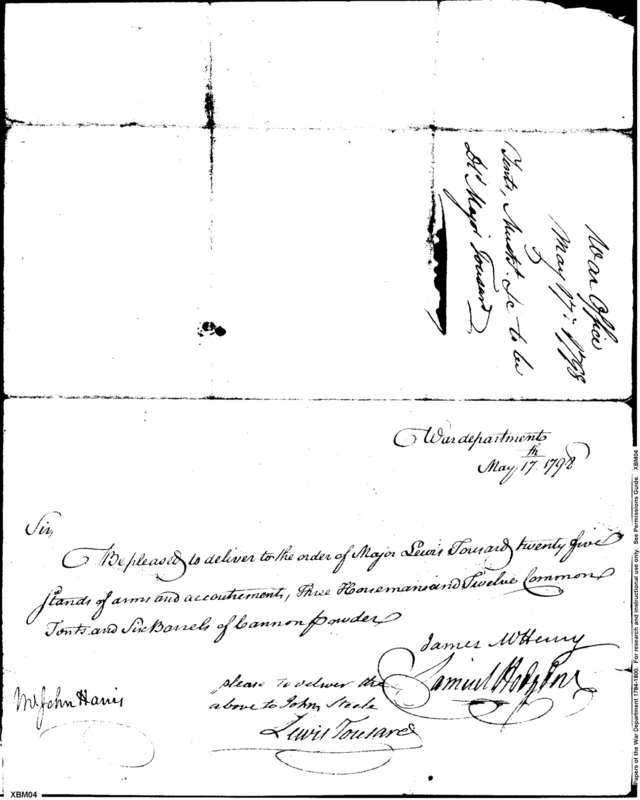 War Office
May 17th 1798
Tents, Muskt. &c to be
Dd. Major Tousard
War department
May 17th 1798
Sir,
Be pleased to deliver to the order of Major Lewis Tousard twenty five
stands of arms and accoutrements, three Horsemans and Twelve Common
Tents and Six Barrels of Cannon powder
James McHenry
Samuel Hodgdon
Mr John Harris
please to deliver the
above to John Steele
Lewis Tousard
Papers of the War Department 1784-1800. For research and instructional use only. See Permissions Guide. XBM04
XBM04